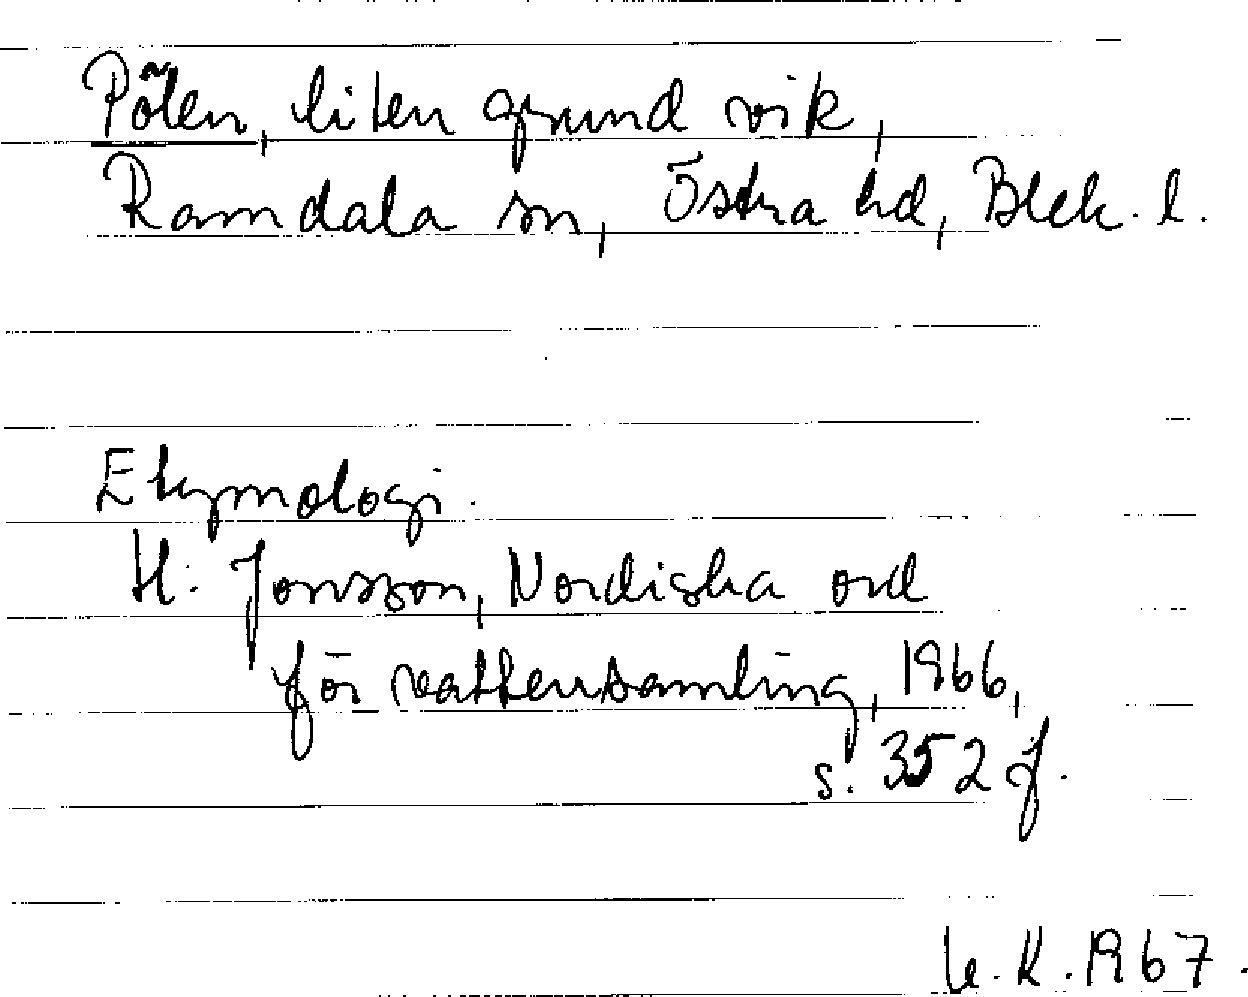 Pölen, liten grund vik,
Ramdala sn, Östra hd, Blek. l.
Etymologi.
H. Jonsson, Nordiska ord
för vattensamling, 1966,
s. 352 f.
K. 1967.